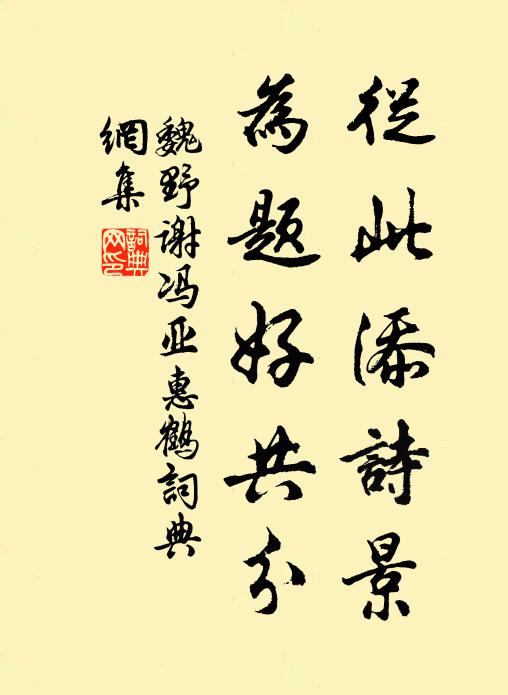 從此添詩景
為題好共分
魏野谢冯亚惠鶴詞典
網集
詞典
网印